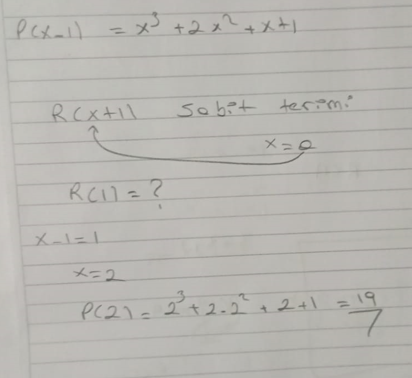 P(x-1) = x³ + 2x² + x + 1
R(x+1) Sabit terim:
x = 0
R(1) = ?
x - 1 = 1
x = 2
P(2) = 2³ + 2.2² + 2 + 1 = 19